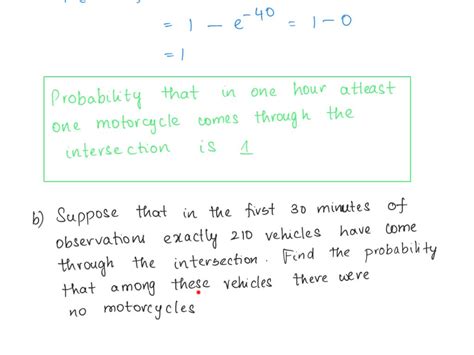 = 1 - e^-40 = 1-0
= 1
Probability that in one hour atleast
one motorcycle comes through the
intersection is 1
b) Suppose that in the first 30 minutes of
observation exactly 210 vehicles have come
through the intersection. Find the probability
that among these vehicles there were
no motorcycles